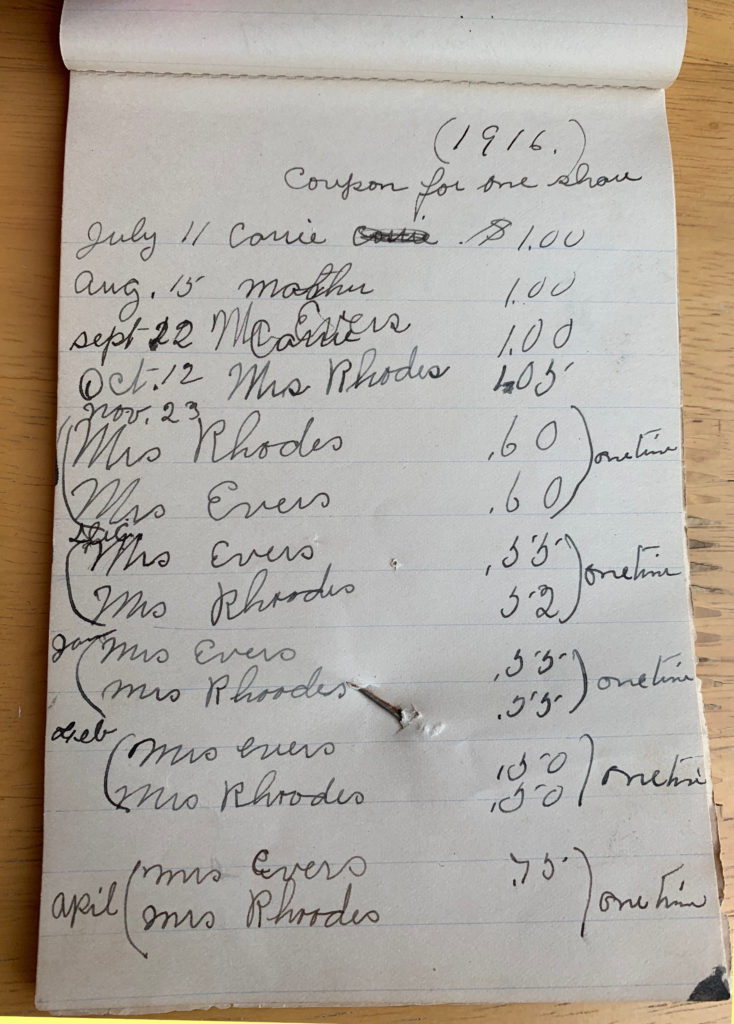 (1916.)
Coupon for one show
July 11 Carrie Carrie $1.00
Aug. 15 1.00
Sept 22 Mrs Evers 1.00
Carrie
Oct. 12 Mrs Rhodes 1.05
Nov. 23
(Mrs Rhodes .60
Mrs Evers .60) onetime
Dec.
(Mrs Evers .55
Mrs Rhodes 52) onetime
Jan (Mrs Evers .55
Mrs Rhoodes .55) onetime
Feb
(Mrs evers .50
Mrs Rhrodes .50) onetime
April (Mrs Evers .75
Mrs Rhrodes) onetime